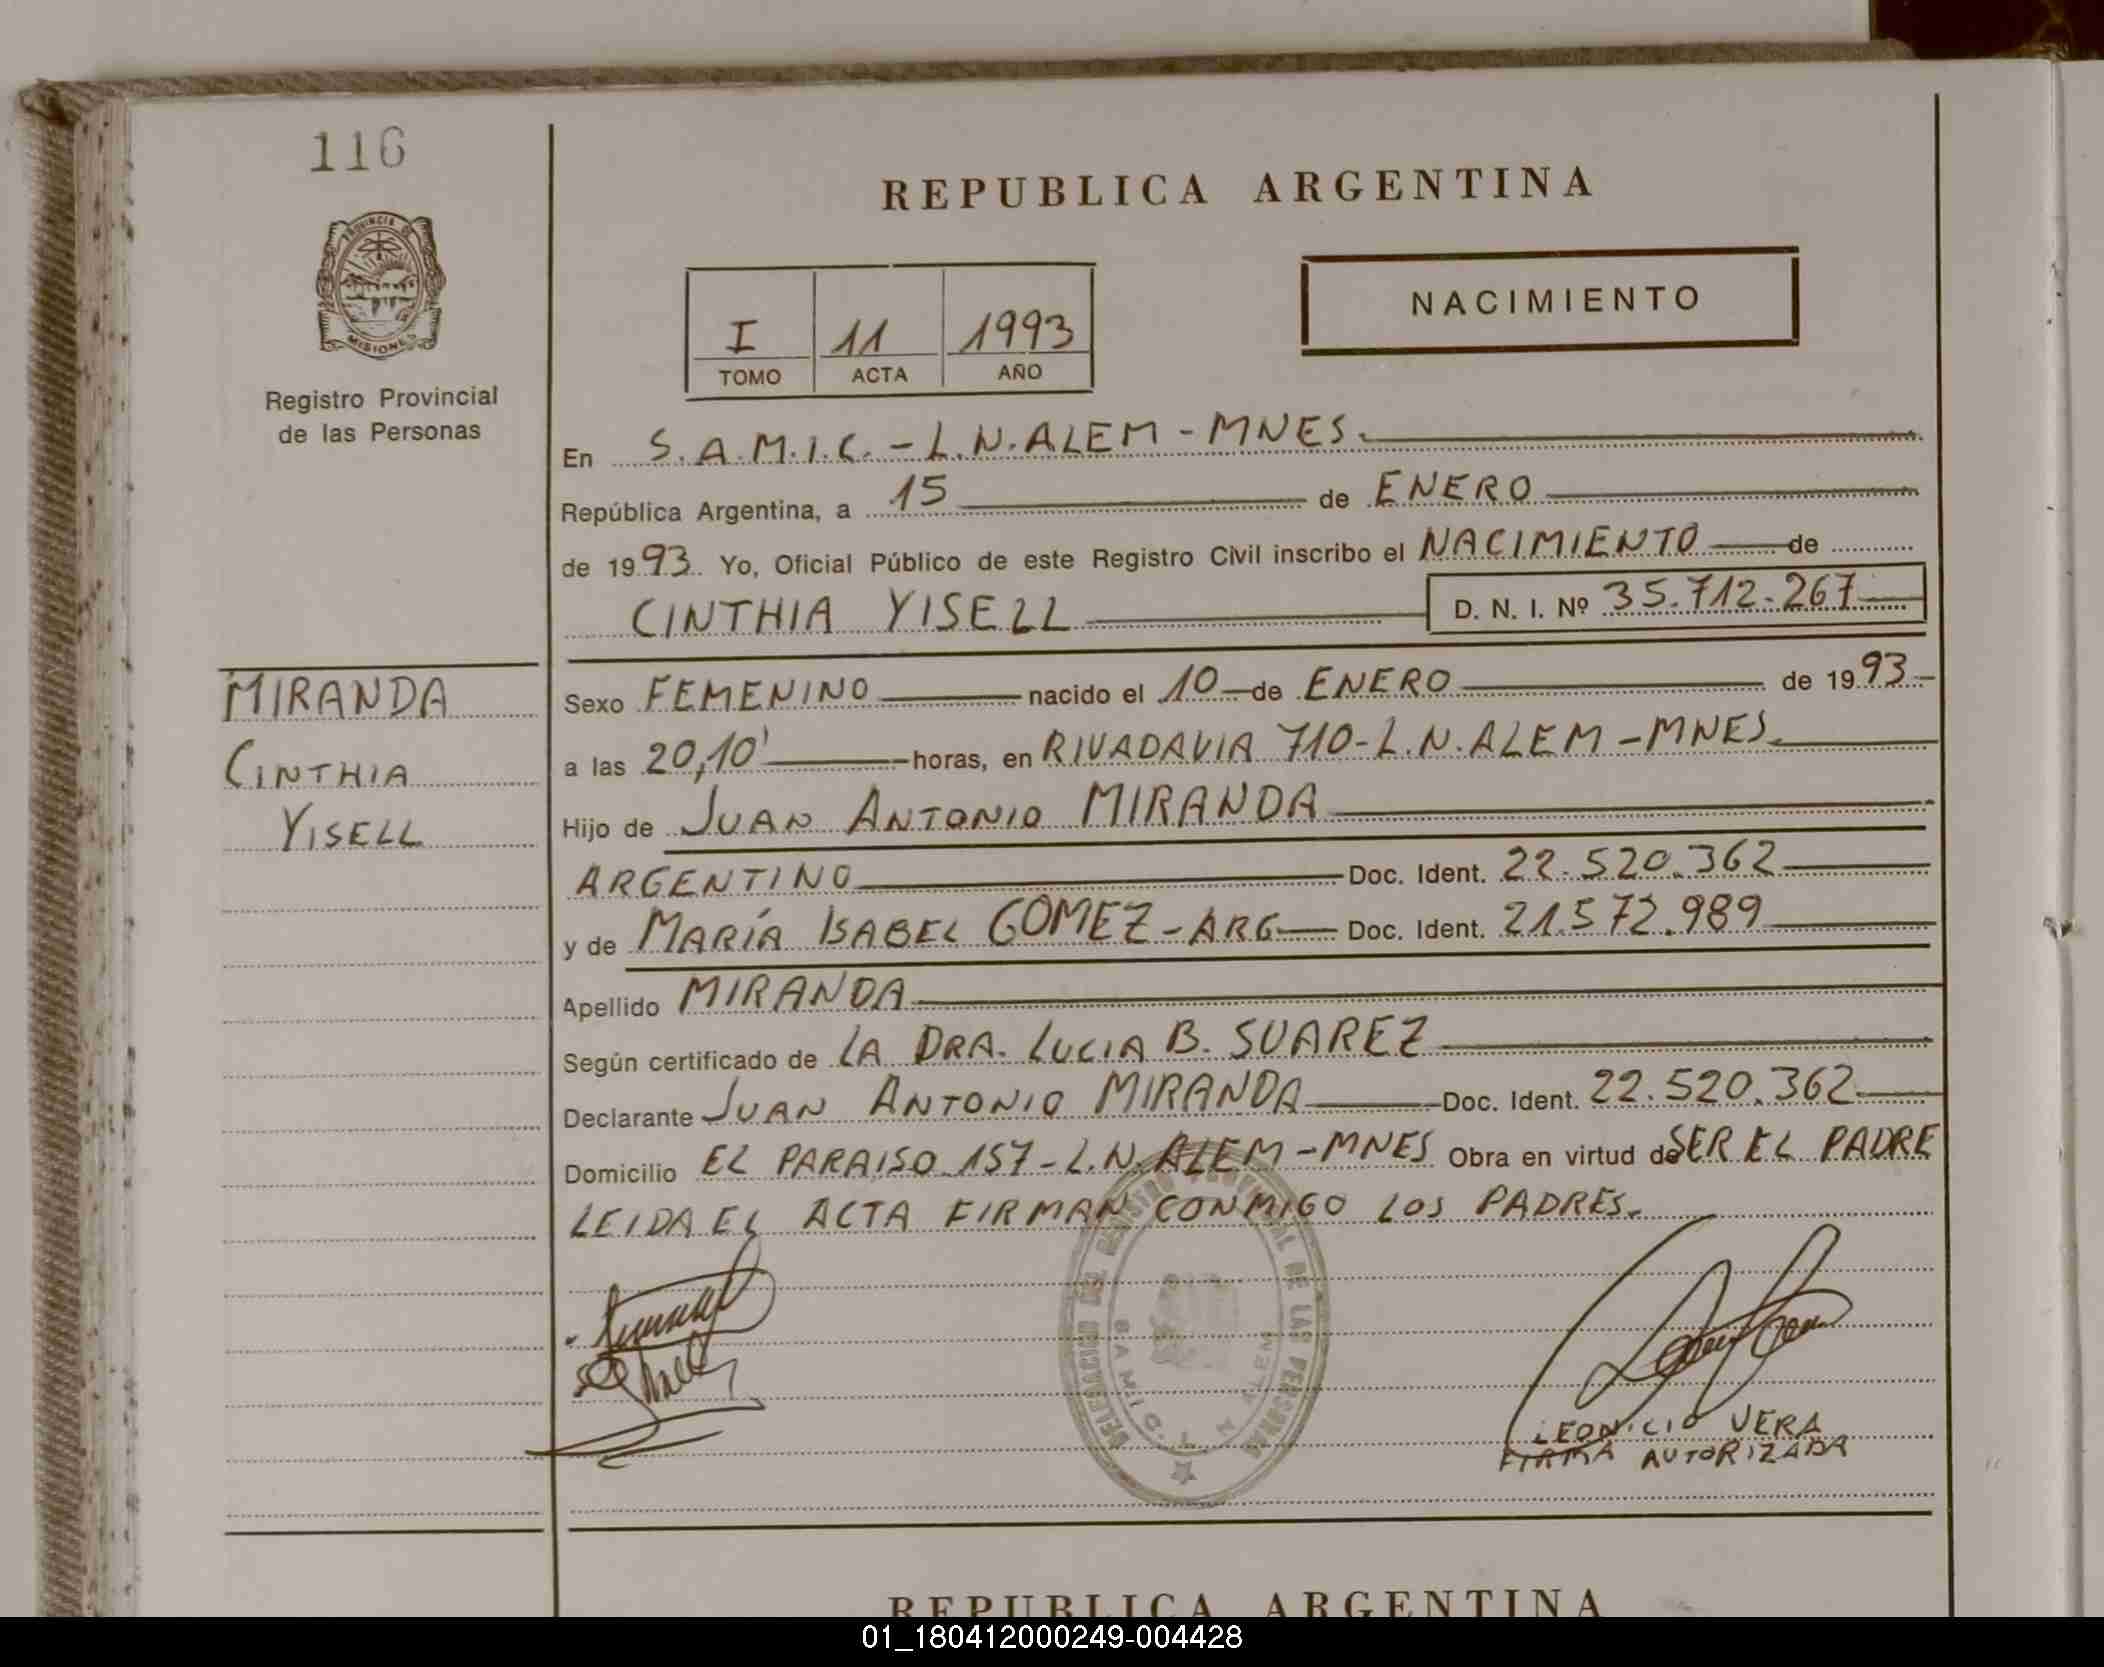 116
PROVINCIA DE
MISIONES
Registro Provincial
de las Personas
REPUBLICA ARGENTINA
I 11 1993
TOMO ACTA AÑO
NACIMIENTO
En S.A.M.I.C. - L.N. ALEM - MNES.
República Argentina, a 15 de ENERO
de 1993. Yo, Oficial Público de este Registro Civil inscribo el NACIMIENTO de
CINTHIA YISELL D. N. I. Nº 35.712.267
MIRANDA
CINTHIA
YISELL
Sexo FEMENINO nacido el 10 de ENERO de 1993
a las 20,10' horas, en RIVADAVIA 710 - L.N. ALEM - MNES.
Hijo de JUAN ANTONIO MIRANDA
ARGENTINO Doc. Ident. 22.520.362
y de MARÍA ISABEL GOMEZ - ARG Doc. Ident. 21.572.989
Apellido MIRANDA
Según certificado de LA DRA. LUCIA B. SUAREZ
Declarante JUAN ANTONIO MIRANDA Doc. Ident. 22.520.362
Domicilio EL PARAISO 157 - L.N. ALEM - MNES Obra en virtud de SER EL PADRE
LEIDA EL ACTA FIRMAN CONMIGO LOS PADRES.
DELEGACION DEL REGISTRO PROVINCIAL DE LAS PERSONAS
S.A.M.I.C. L. N. ALEM
LEONICIO VERA
FIRMA AUTORIZADA
REPUBLICA ARGENTINA
01_180412000249-004428